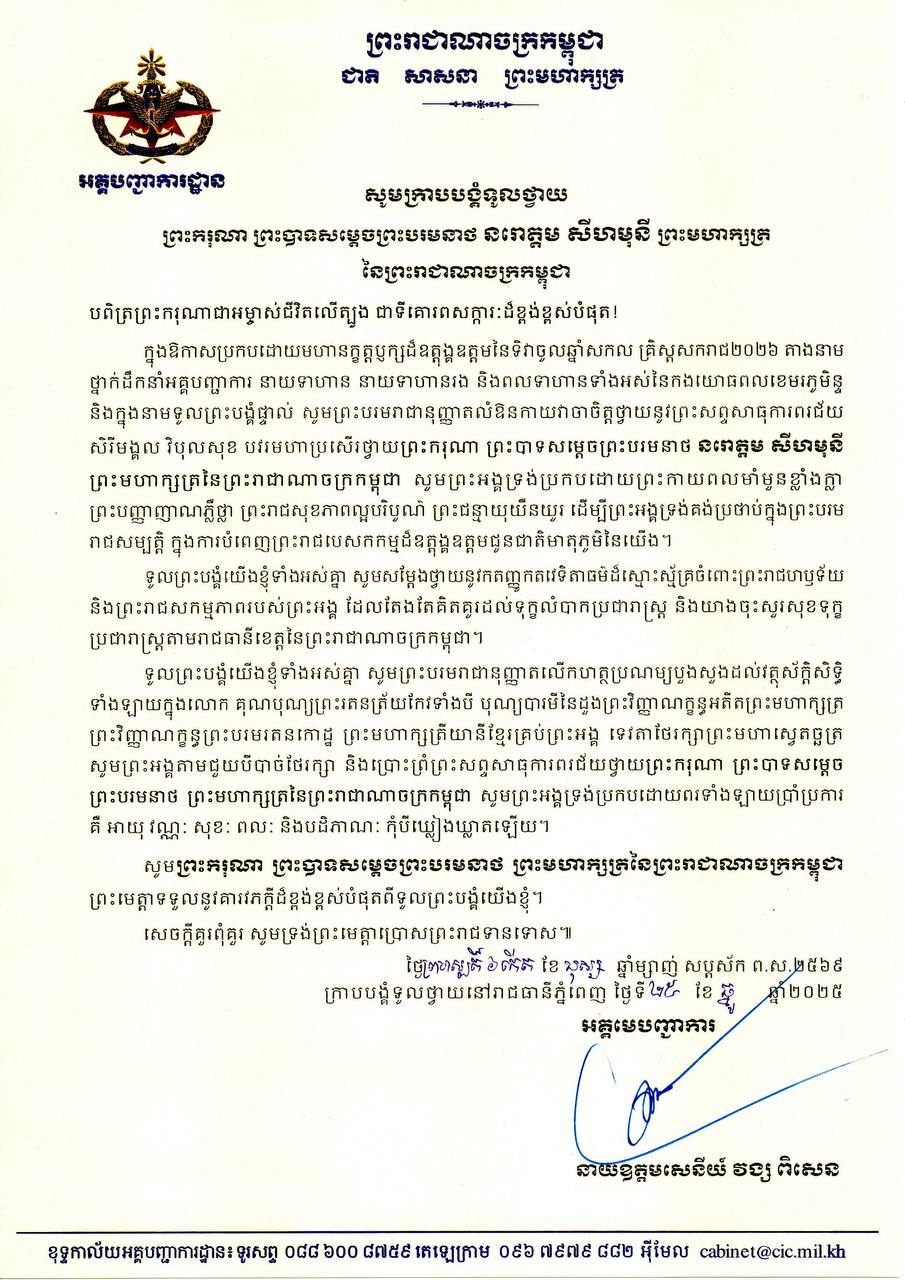 ព្រះរាជាណាចក្រកម្ពុជា
ជាតិ សាសនា ព្រះមហាក្សត្រ
អគ្គបញ្ជាការដ្ឋាន
សូមក្រាបបង្គំទូលថ្វាយ
ព្រះករុណា ព្រះបាទសម្តេចព្រះបរមនាថ នរោត្តម សីហមុនី ព្រះមហាក្សត្រ
នៃព្រះរាជាណាចក្រកម្ពុជា
បពិត្រព្រះករុណាជាអម្ចាស់ជីវិតលើត្បូង ជាទីគោរពសក្ការៈដ៏ខ្ពង់ខ្ពស់បំផុត!
ក្នុងឱកាសប្រកបដោយមហានក្ខត្តឫក្សដ៏ឧត្តុង្គឧត្តមនៃទិវាចូលឆ្នាំសកល គ្រិស្តសករាជ២០២៦ តាងនាម
ថ្នាក់ដឹកនាំអគ្គបញ្ជាការ នាយទាហាន នាយទាហានរង និងពលទាហានទាំងអស់នៃកងយោធពលខេមរភូមិន្ទ
និងក្នុងនាមទូលព្រះបង្គំផ្ទាល់ សូមព្រះបរមរាជានុញ្ញាតលំឱនកាយវាចាចិត្តថ្វាយនូវព្រះសព្ទសាធុការពរជ័យ
សិរីមង្គល វិបុលសុខ បវរមហាប្រសើរថ្វាយព្រះករុណា ព្រះបាទសម្តេចព្រះបរមនាថ នរោត្តម សីហមុនី
ព្រះមហាក្សត្រនៃព្រះរាជាណាចក្រកម្ពុជា សូមព្រះអង្គទ្រង់ប្រកបដោយព្រះកាយពលមាំមួនខ្លាំងក្លា
ព្រះបញ្ញាញាណភ្លឺថ្លា ព្រះរាជសុខភាពល្អបរិបូណ៌ ព្រះជន្មាយុយឺនយូរ ដើម្បីព្រះអង្គទ្រង់គង់ប្រថាប់ក្នុងព្រះបរម
រាជសម្បត្តិ ក្នុងការបំពេញព្រះរាជបេសកកម្មដ៏ឧត្តុង្គឧត្តមជូនជាតិមាតុភូមិនៃយើង។
ទូលព្រះបង្គំយើងខ្ញុំទាំងអស់គ្នា សូមសម្តែងថ្វាយនូវកតញ្ញូកតវេទិតាធម៌ដ៏ស្មោះស្ម័គ្រចំពោះព្រះរាជហឫទ័យ
និងព្រះរាជសកម្មភាពរបស់ព្រះអង្គ ដែលតែងតែគិតគូរដល់ទុក្ខលំបាកប្រជារាស្ត្រ និងយាងចុះសួរសុខទុក្ខ
ប្រជារាស្ត្រតាមរាជធានីខេត្តនៃព្រះរាជាណាចក្រកម្ពុជា។
ទូលព្រះបង្គំយើងខ្ញុំទាំងអស់គ្នា សូមព្រះបរមរាជានុញ្ញាតលើកហត្ថប្រណម្យបួងសួងដល់វត្ថុស័ក្តិសិទ្ធិ
ទាំងឡាយក្នុងលោក គុណបុណ្យព្រះរតនត្រ័យកែវទាំងបី បុណ្យបារមីនៃដួងព្រះវិញ្ញាណក្ខន្ធអតីតព្រះមហាក្សត្រ
ព្រះវិញ្ញាណក្ខន្ធព្រះបរមរតនកោដ្ឋ ព្រះមហាក្សត្រីយានីខ្មែរគ្រប់ព្រះអង្គ ទេវតាថែរក្សាព្រះមហាស្វេតច្ឆត្រ
សូមព្រះអង្គតាមជួយបីបាច់ថែរក្សា និងប្រោះព្រំព្រះសព្ទសាធុការពរជ័យថ្វាយព្រះករុណា ព្រះបាទសម្តេច
ព្រះបរមនាថ ព្រះមហាក្សត្រនៃព្រះរាជាណាចក្រកម្ពុជា សូមព្រះអង្គទ្រង់ប្រកបដោយពរទាំងឡាយប្រាំប្រការ
គឺ អាយុ វណ្ណៈ សុខៈ ពលៈ និងបដិភាណៈ កុំបីឃ្លៀងឃ្លាតឡើយ។
សូមព្រះករុណា ព្រះបាទសម្តេចព្រះបរមនាថ ព្រះមហាក្សត្រនៃព្រះរាជាណាចក្រកម្ពុជា
ព្រះមេត្តាទទួលនូវគារវភក្តីដ៏ខ្ពង់ខ្ពស់បំផុតពីទូលព្រះបង្គំយើងខ្ញុំ។
សេចក្តីគួរពុំគួរ សូមទ្រង់ព្រះមេត្តាប្រោសព្រះរាជទានទោស៕
ថ្ងៃព្រហស្បតិ៍ ៦កើត ខែ បុស្ស ឆ្នាំម្សាញ់ សប្តស័ក ព.ស.២៥៦៩
ក្រាបបង្គំទូលថ្វាយនៅរាជធានីភ្នំពេញ ថ្ងៃទី២៥ ខែ ធ្នូ ឆ្នាំ២០២៥
អគ្គមេបញ្ជាការ
នាយឧត្តមសេនីយ៍ វង្ស ពិសេន
ខុទ្ទកាល័យអគ្គបញ្ជាការដ្ឋាន៖ ទូរសព្ទ ០៨៨ ៦០០ ៨៧៥៩ តេឡេក្រាម ០៩៦ ៧៩៧៩ ៨៨២ អ៊ីមែល cabinet@cic.mil.kh